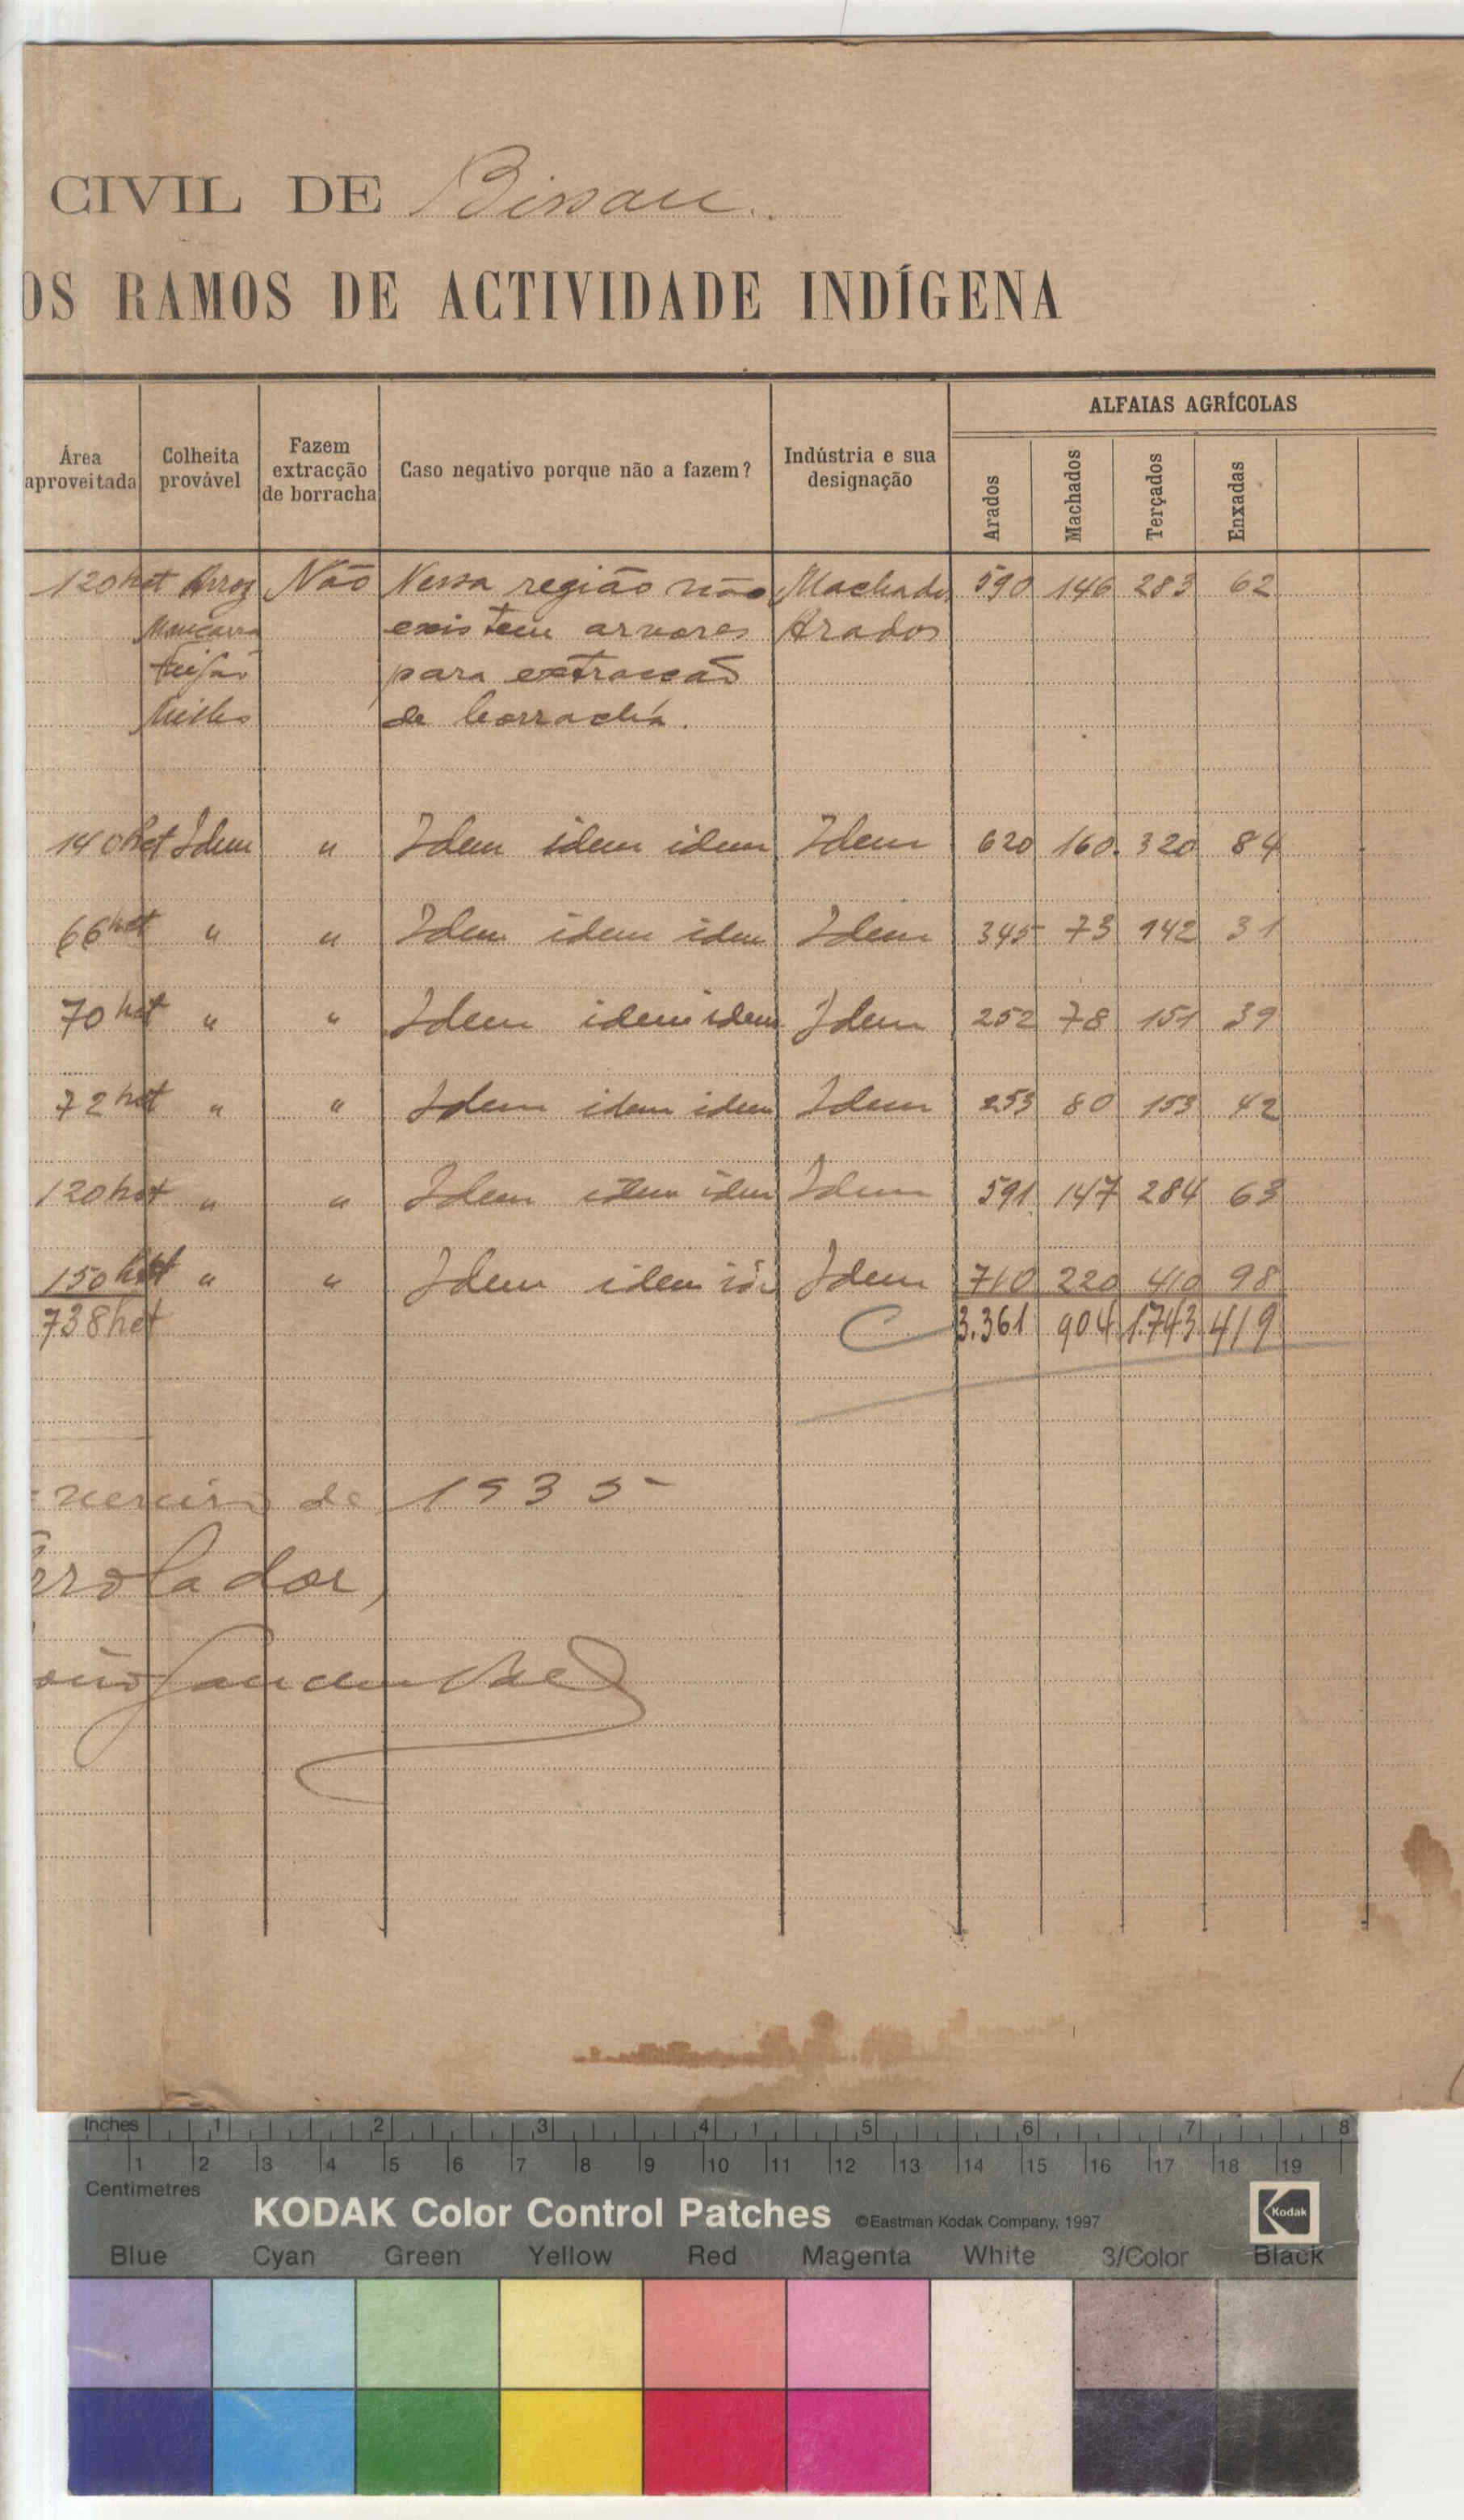 CIVIL DE Bissau
OS RAMOS DE ACTIVIDADE INDÍGENA
ALFAIAS AGRÍCOLAS
Área aproveitada
Colheita provável
Fazem extracção de borracha
Caso negativo porque não a fazem?
Indústria e sua designação
Arados
Machados
Terçados
Enxadas
120 het Arroz Não Nessa região não Machados 590 146 283 62
Mancarra existem arvores Arados
Feijão para extracção
Milho de borracha.
140 het Idem " Idem idem idem Idem 620 160. 320 84
66 het " " Idem idem idem Idem 345 73 142 31
70 het " " Idem idem idem Idem 252 78 151 39
72 het " " Idem idem idem Idem 253 80 153 42
120 het " " Idem idem idem Idem 591 147 284 63
150 het " " Idem idem Idem 710 220 410 98
738 het 3.361 904 1.743 419
vereiro de 1935
rrolador,
Inches 1 2 3 4 5 6 7 8
1 2 3 4 5 6 7 8 9 10 11 12 13 14 15 16 17 18 19
Centimetres
KODAK Color Control Patches ©Eastman Kodak Company, 1997 Kodak
Blue Cyan Green Yellow Red Magenta White 3/Color Black